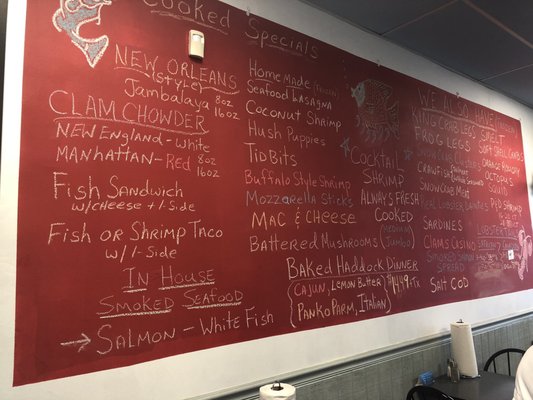 Cooked Specials
New Orleans
(Style)
Jambalaya 8oz
16oz
Clam Chowder
New England - White
Manhattan - Red 8oz
16oz
Fish Sandwich
w/cheese + 1-Side
Fish or Shrimp Taco
w/1-Side
In House
Smoked Seafood
Salmon - White Fish
Home Made (Frozen)
Seafood Lasagna
Coconut Shrimp
Hush Puppies
TidBits
Buffalo Style Shrimp
Mozzarella Sticks
Mac & Cheese
Battered Mushrooms
Baked Haddock Dinner
(Cajun, Lemon Butter,
Panko Parm, Italian)
Cocktail
Shrimp
Always Fresh
Cooked
(Medium)
(Jumbo)
We Also Have
King Crab Legs
Smelt
Frog Legs
Soft Shell Crabs
Orange Roughy
Octopus
Squid
Sardines
Clams Casino
Smoked Salmon
Spread
Salt Cod